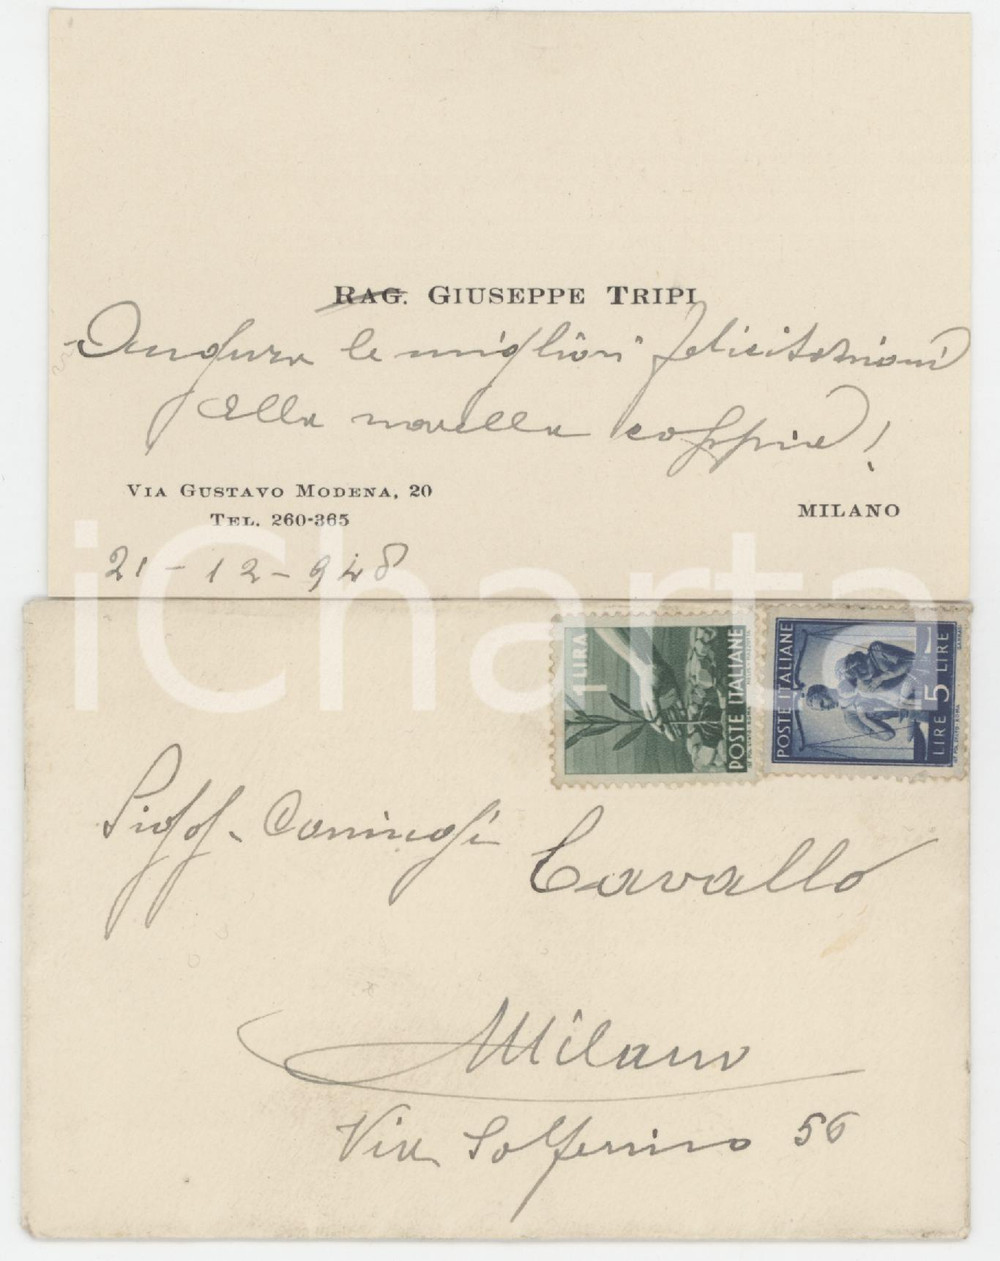 RAG. GIUSEPPE TRIPI
Augura le migliori felicitazioni
alla novella coppia!
VIA GUSTAVO MODENA, 20
TEL. 260-365
MILANO
21-12-948
iCharta
1 LIRA
POSTE ITALIANE
POSTE ITALIANE
LIRE 5 LIRE
Sigg. Coniugi
Cavallo
Milano
Via Solferino 56